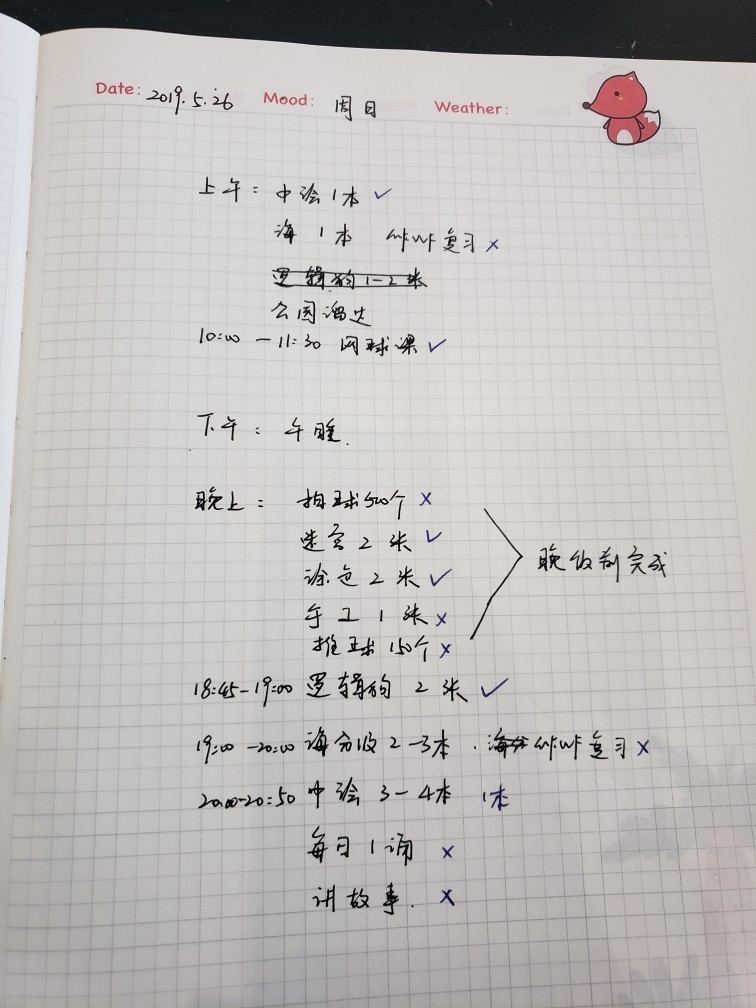 Date: 2019.5.26 Mood: 周日 Weather:
上午: 中绘1本 ✓
海 1本 复习 ×
逻辑狗1-2张
公园溜达
10:00 - 11:30 网球课 ✓
下午: 午睡.
晚上: 拍球500个 ×
迷宫2张 ✓
涂色2张 ✓
手工1张 ×
推球150个 ×
晚饭前完成
18:45-19:00 逻辑狗 2张 ✓
19:00-20:00 海分级2-3本. 复习 ×
20:00-20:50 中绘3-4本 1本
每日1诵 ×
讲故事. ×